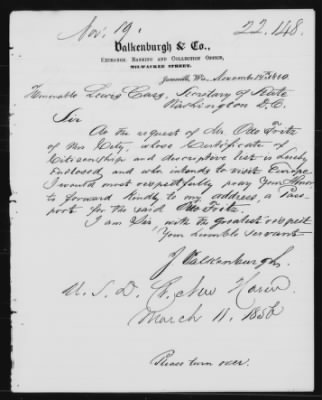 Nov. 19.
22,148.
Valkenburgh & Co.,
Exchange, Banking and Collection Office,
Milwaukee Street.
Janesville, Wis., November 14th 1860.
Honorable Lewis Cass, Secretary of State
Washington D.C.
Sir
At the request of Mr. Otto Fritz
of this City, whose Certificate of
Citizenship and descriptive list is hereby
Enclosed, and who intends to visit Europe
I would most respectfully pray Your Honor
to forward kindly to my address, a Pass
port for the said Otto Fritz.
I am Sir with the greatest respect
Your humble servant
J Valkenburgh.
U. S. D. C. New Haven
March 11. 1856
Please turn over.